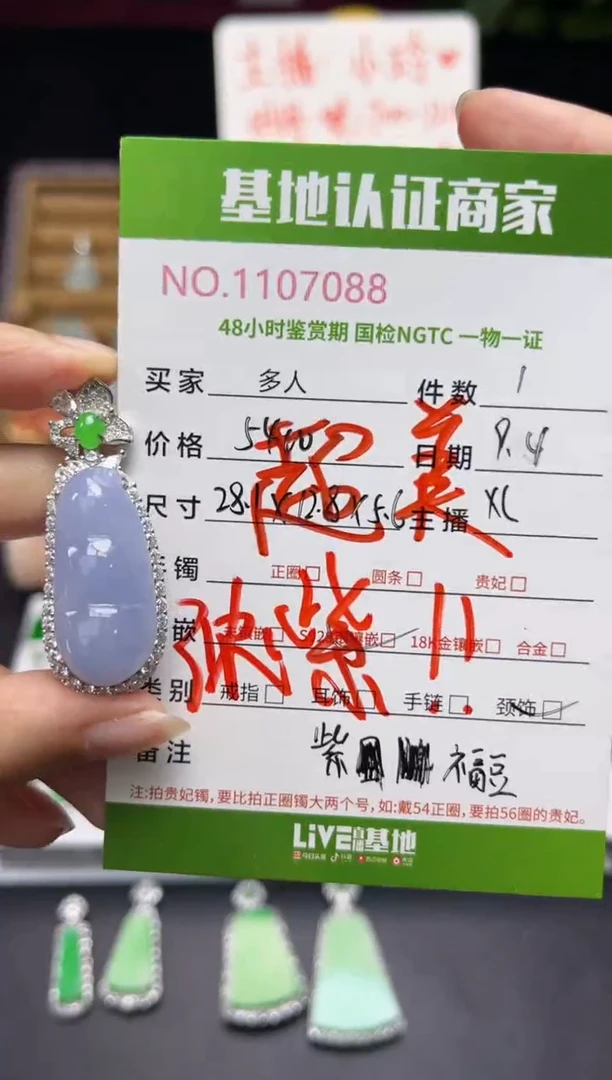 主播:小玲❤
基地认证商家
NO.1107088
48小时鉴赏期 国检NGTC 一物一证
买家 多人 件数 1
价格 日期 9.4
尺寸 28.1×12.8×5.6 主播 XC
超美
手镯 正圈□ 圆条□ 贵妃□
嵌 镶嵌□ 18K金镶嵌□ 合金□
紫!!
类别 戒指□ 耳饰□ 手链□ 颈饰□
备注 紫 福豆
注:拍贵妃镯,要比拍正圈镯大两个号,如:戴54正圈,要拍56圈的贵妃。
LiVE直播基地